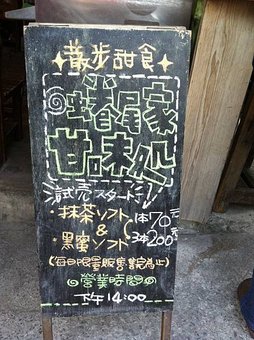 散步甜食
蜷尾家
甘味処
試売スタート
・抹茶ソフト 1本70元
&
・黒蜜ソフト 3本200元
(每日限量販售售完為止)
營業時間
下午14:00